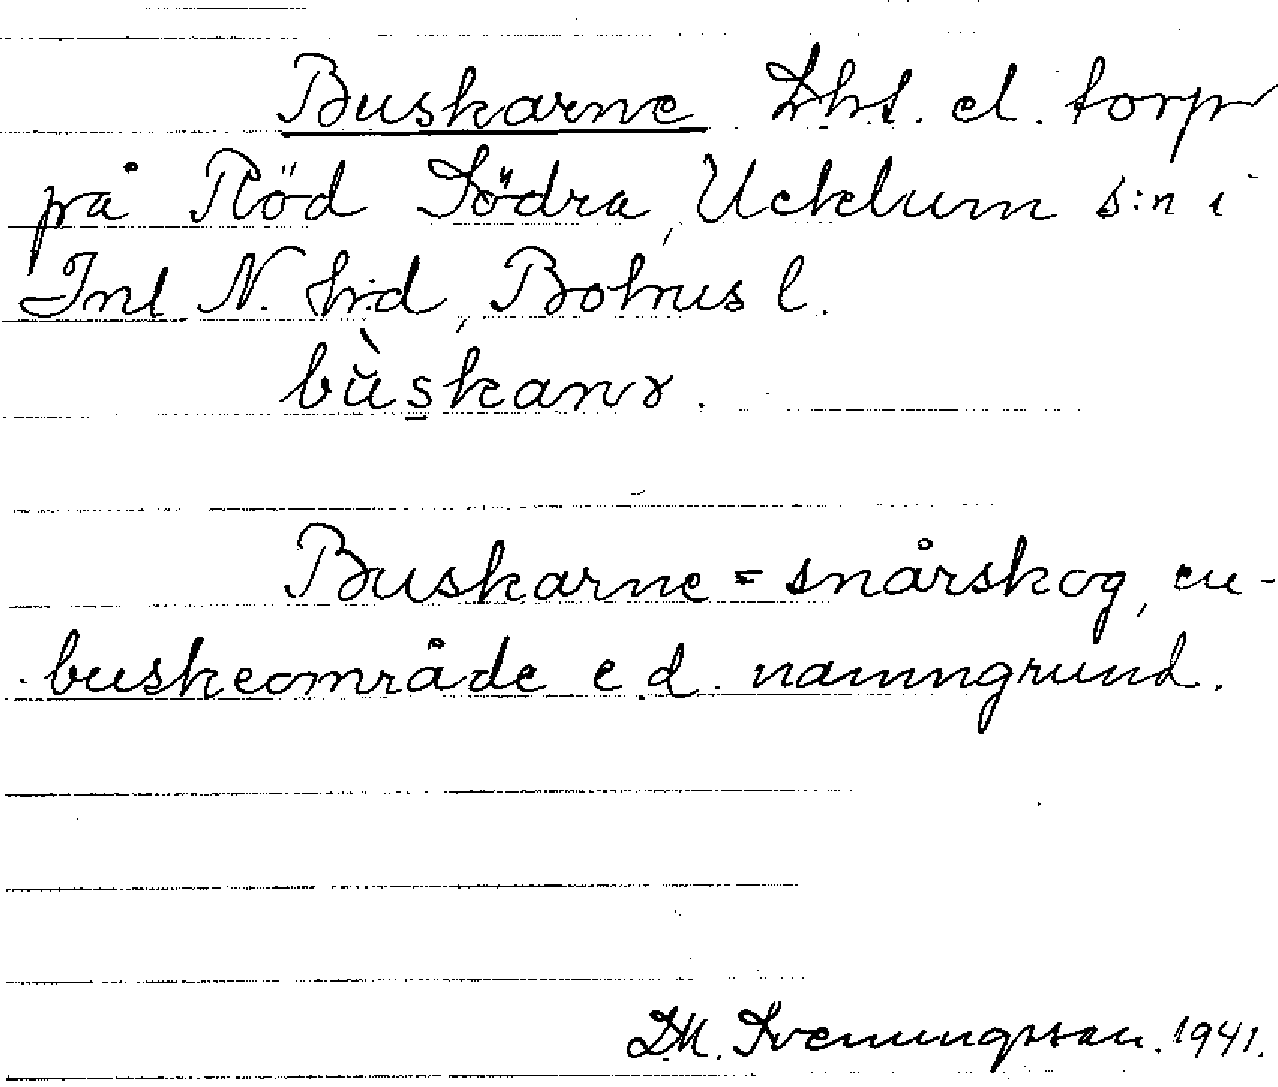 Buskarne Lht. el. torp
på Röd Södra, Ucklum s:n i
Inl N. hrd, Bohus l.
bùskanɤ.
Buskarne = snårskog, en-
buskeområde e.d. namngrund.
D.M. Svenningsson. 1941.